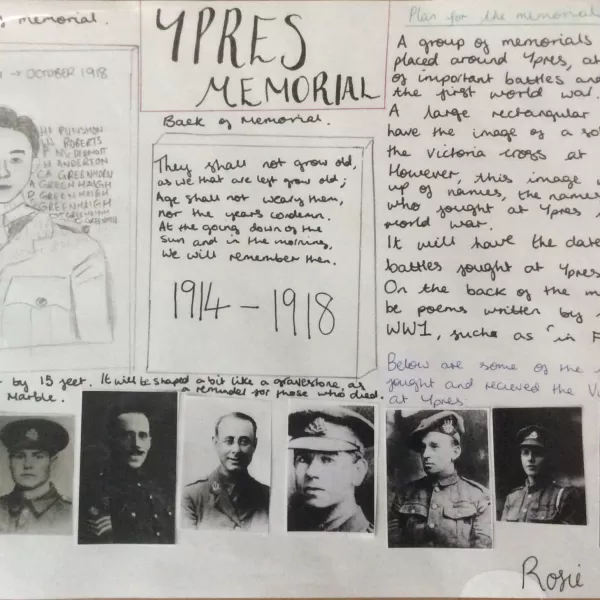 memorial.
→ OCTOBER 1918
PUNSHON
ROBERTS
McDERMOTT
ANDERTON
GREENHORN
GREENHALGH
GREENHALGH
GREENHALGH
YPRES
MEMORIAL
Back of Memorial.
They shall not grow old,
as we that are left grow old;
Age shall not weary them,
nor the years condemn.
At the going down of the
sun and in the morning,
We will remember them.
1914 - 1918
Plan for the memorial
A group of memorials
placed around Ypres, at
of important battles and
the first world war.
A large rectangular
have the image of a
the Victoria cross at
However, this image
up of names, the names
who fought at Ypres
world war.
It will have the date
battles fought at Ypres
On the back of the
be poems written by
WW1, such as "in F
Below are some of the
fought and recieved the
at Ypres.
by 15 feet. It will be shaped a bit like a gravestone, as
a reminder for those who died.
Marble.
Rosie